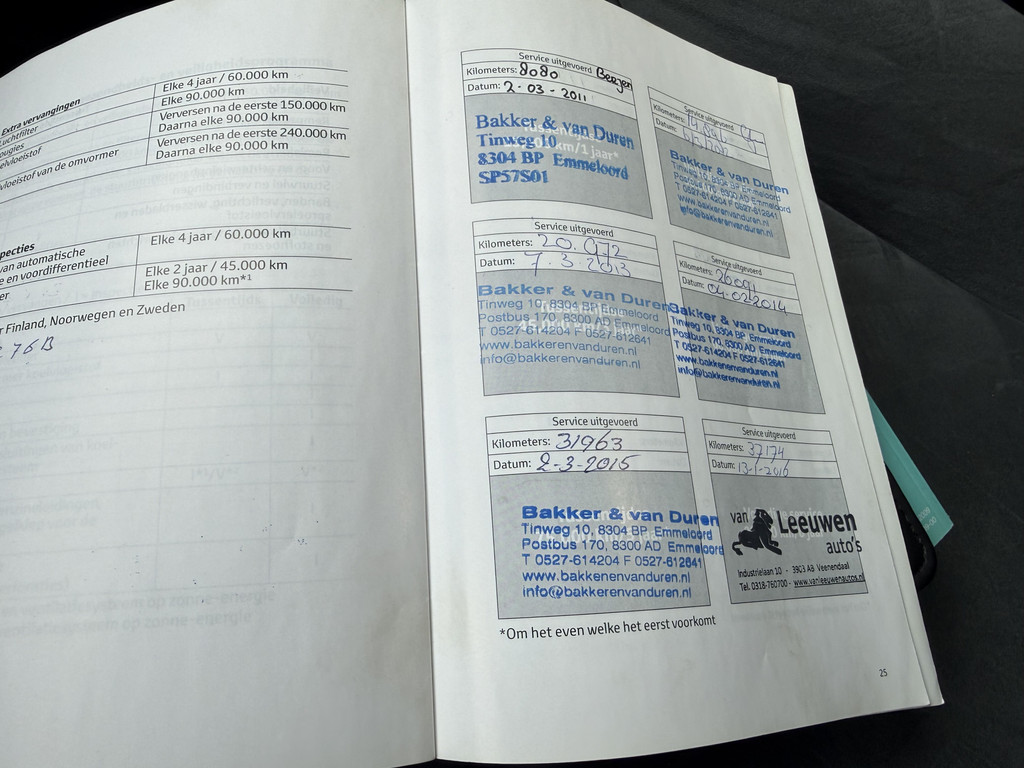 Extra vervangingen
Elke 4 jaar / 60.000 km
Elke 90.000 km
Verversen na de eerste 150.000 km
Daarna elke 90.000 km
vloeistof van de omvormer
Verversen na de eerste 240.000 km
Daarna elke 90.000 km
van automatische
Elke 4 jaar / 60.000 km
e en voordifferentieel
Elke 2 jaar / 45.000 km
Elke 90.000 km*1
r Finland, Noorwegen en Zweden
76B
Service uitgevoerd
Kilometers: 8080
Datum: 2-03-2011
Bakker & van Duren
Tinweg 10
8304 BP Emmeloord
SP57S01
Service uitgevoerd
Kilometers:
Datum:
Bakker & van Duren
Tinweg 10, 8304 BP Emmeloord
Postbus 170, 8300 AD Emmeloord
T 0527-614204 F 0527-612641
www.bakkerenvanduren.nl
info@bakkerenvanduren.nl
Service uitgevoerd
Kilometers: 20.972
Datum: 7.3.2013
Bakker & van Duren
Tinweg 10, 8304 BP Emmeloord
Postbus 170, 8300 AD Emmeloord
T 0527-614204 F 0527-612641
www.bakkerenvanduren.nl
info@bakkerenvanduren.nl
Service uitgevoerd
Kilometers: 26091
Datum: 04-02-2014
Bakker & van Duren
Tinweg 10, 8304 BP Emmeloord
Postbus 170, 8300 AD Emmeloord
T 0527-614204 F 0527-612641
www.bakkenenvanduren.nl
info@bakkerenvanduren.nl
Service uitgevoerd
Kilometers: 31963
Datum: 2-3-2015
Bakker & van Duren
Tinweg 10, 8304 BP Emmeloord
Postbus 170, 8300 AD Emmeloord
T 0527-614204 F 0527-612641
www.bakkenenvanduren.nl
info@bakkerenvanduren.nl
Service uitgevoerd
Kilometers: 37174
Datum: 13-1-2016
van Leeuwen
auto's
Industrielaan 10 - 3903 AB Veenendaal
Tel. 0318-760700 - www.vanleeuwenautos.nl
*Om het even welke het eerst voorkomt
25